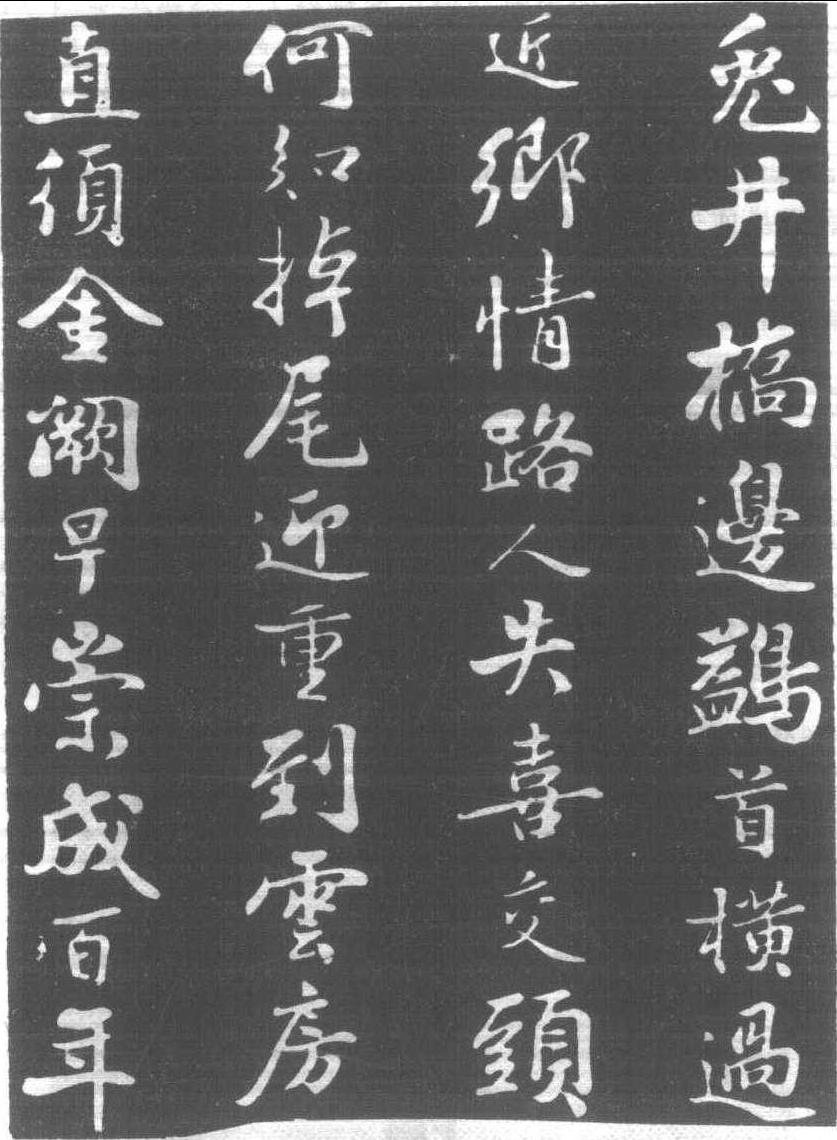 兎井橋邊鷁首橫過
近鄉情路人失喜交頭
何知掉尾迎重到雲房
直須金闕早崇成百年